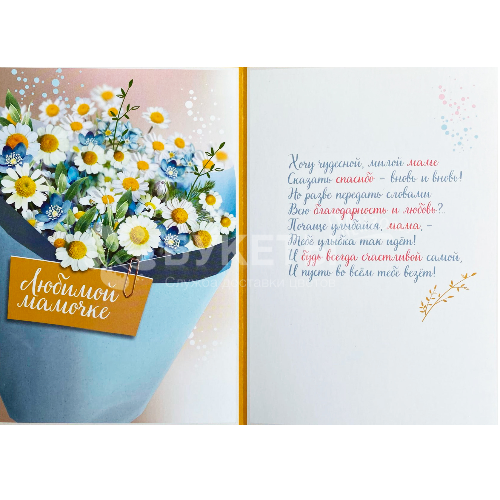 Любимой
мамочке
Хочу чудесной, милой маме
Сказать спасибо – вновь и вновь!
Но разве передать словами
Всю благодарность и любовь?
Почаще улыбайся, мама, –
Тебе улыбка так идёт!
И будь всегда счастливой самой,
И пусть во всём тебе везёт!
БУКЕТ
Служба доставки